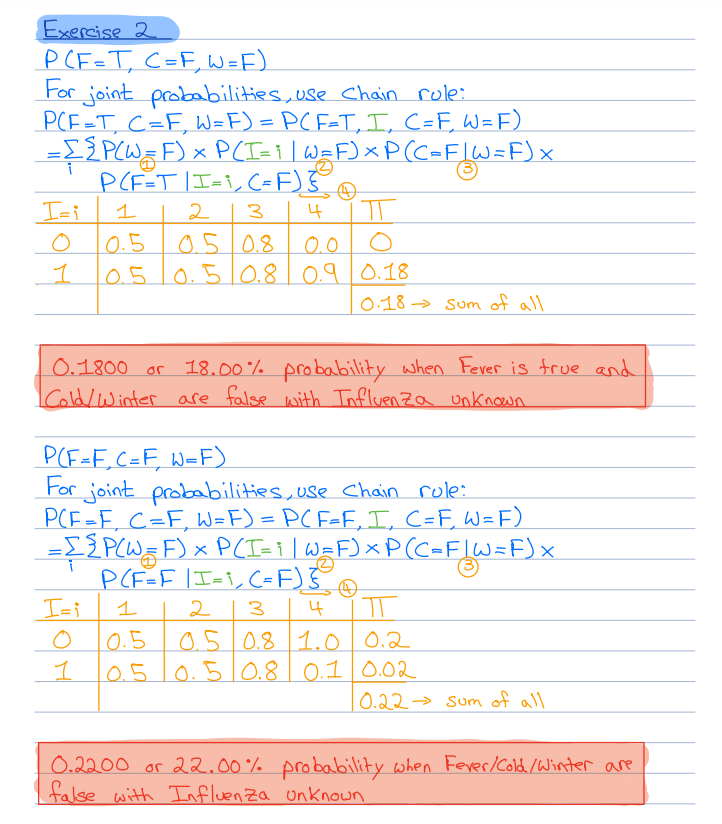 Exercise 2
P(F=T, C=F, W=F)
For joint probabilities, use chain rule:
P(F=T, C=F, W=F) = P(F=T, I, C=F, W=F)
=Σ{P(W=F) × P(I=i | W=F) × P(C=F|W=F) ×
i ① ② ③
P(F=T | I=i, C=F)} ④
I=i 1 2 3 4 Π
0 0.5 0.5 0.8 0.0 0
1 0.5 0.5 0.8 0.9 0.18
0.18 → sum of all
0.1800 or 18.00% probability when Fever is true and
Cold/Winter are false with Influenza unknown
P(F=F, C=F, W=F)
For joint probabilities, use chain rule:
P(F=F, C=F, W=F) = P(F=F, I, C=F, W=F)
=Σ{P(W=F) × P(I=i | W=F) × P(C=F|W=F) ×
i ① ② ③
P(F=F | I=i, C=F)} ④
I=i 1 2 3 4 Π
0 0.5 0.5 0.8 1.0 0.2
1 0.5 0.5 0.8 0.1 0.02
0.22 → sum of all
0.2200 or 22.00% probability when Fever/Cold/Winter are
false with Influenza unknown